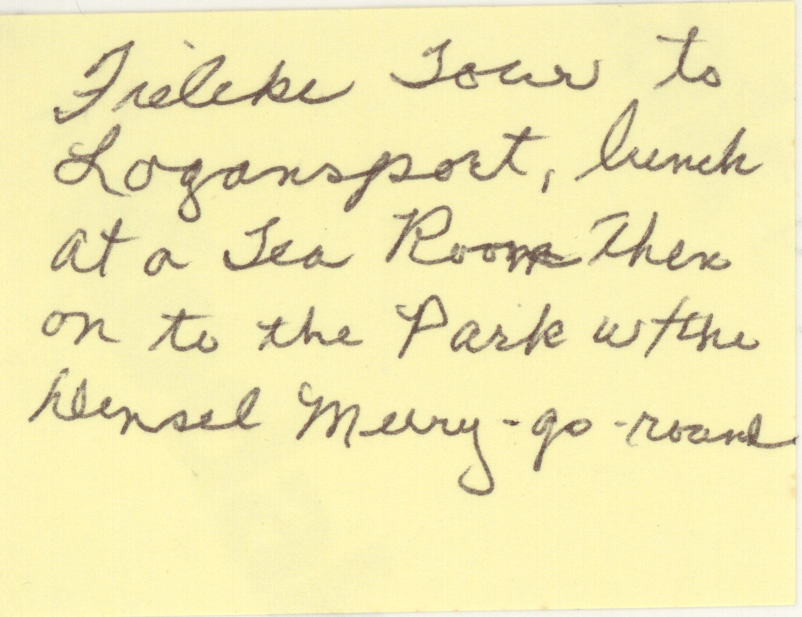 Fieleke Tour to
Logansport, lunch
at a Tea Room Then
on to the Park w/the
Densel Merry-go-round